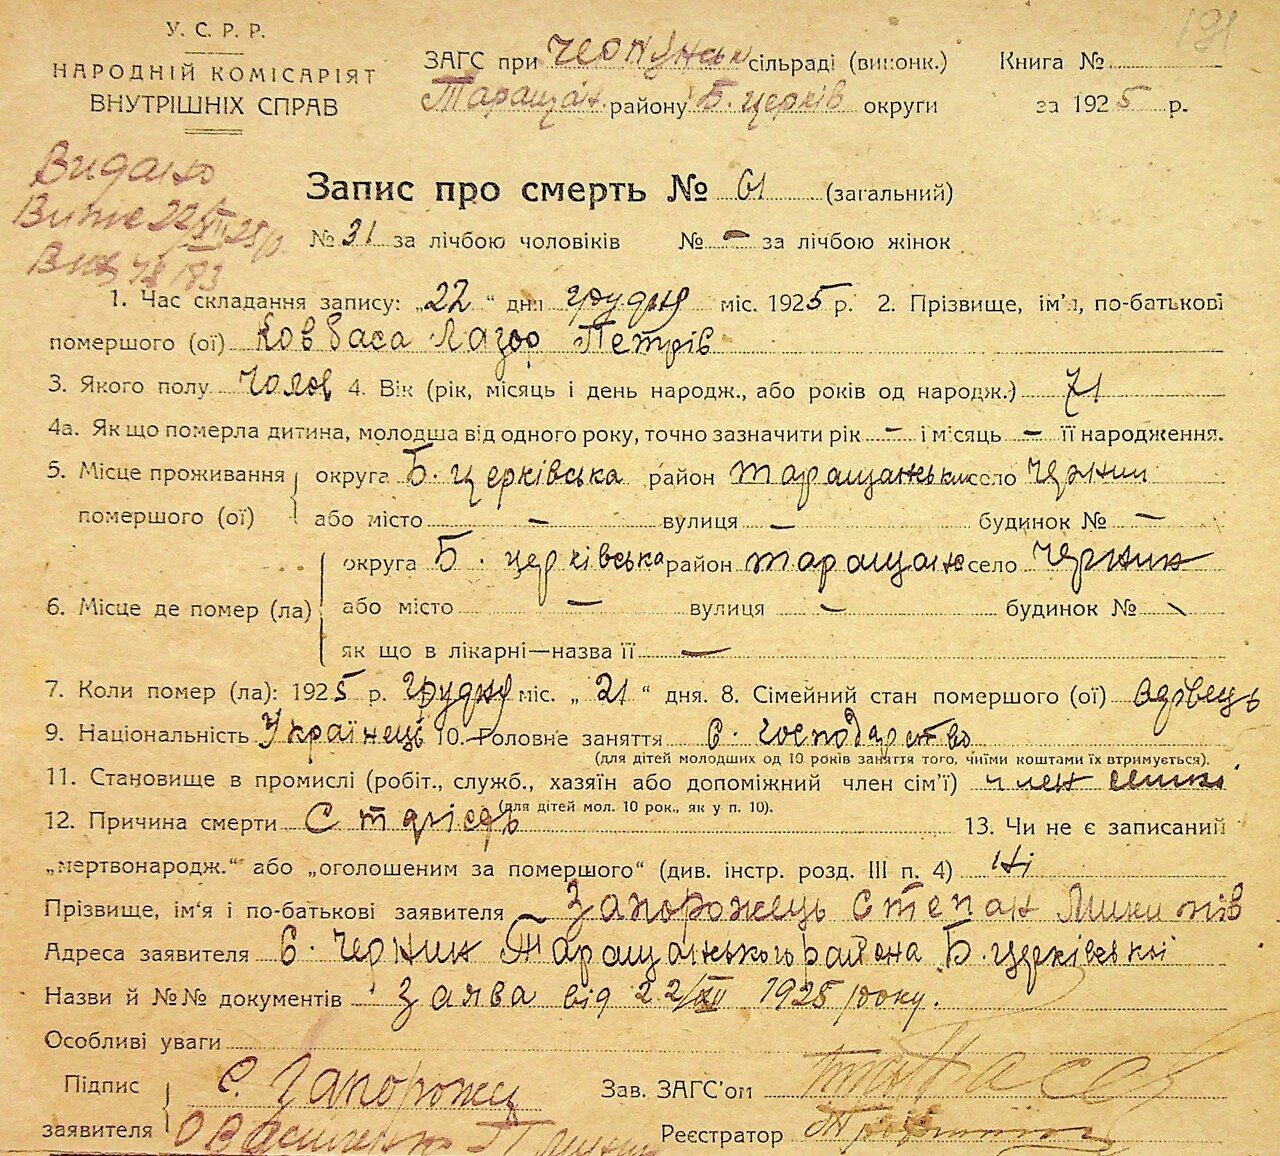 191
У. С. Р. Р.
НАРОДНІЙ КОМІСАРІЯТ
ВНУТРІШНІХ СПРАВ
ЗАГС при сільраді (виконк.) Книга №
Таращан. району Б. церків округи за 1925 р.
Видано
22/XII 25 р.
Запис про смерть № 61 (загальний)
№ 31 за лічбою чоловіків № – за лічбою жінок
1. Час складання запису: „22“ дня грудня міс. 1925 р. 2. Прізвище, ім'я, по-батькові
помершого (ої) Ковбаса Лазор Петрів
3. Якого полу Чолов 4. Вік (рік, місяць і день народж., або років од народж.) 71
4а. Як що померла дитина, молодша від одного року, точно зазначити рік – і місяць – її народження.
5. Місце проживання округа Б. церківська район таращанськи село Чернин
помершого (ої) або місто – вулиця – будинок № –
округа Б. церківська район таращанс село Чернин
6. Місце де помер (ла) або місто – вулиця – будинок № \
як що в лікарні—назва її –
7. Коли помер (ла): 1925 р. грудня міс. „21“ дня. 8. Сімейний стан помершого (ої) вдівець
9. Національність Українець 10. Головне заняття с. господарство
(для дітей молодших од 10 років заняття того, чиїми коштами їх втримується).
11. Становище в промислі (робіт., служб., хазяїн або допоміжний член сім'ї) член
(для дітей мол. 10 рок., як у п. 10).
12. Причина смерти Старість 13. Чи не є записаний
„мертвонародж.“ або „оголошеним за помершого“ (див. інстр. розд. III п. 4) Ні
Прізвище, ім'я і по-батькові заявителя Запорожець Степан
Адреса заявителя С. Чернин Таращанського района Б. церківської
Назви й №№ документів Заява від 22/XII 1925 року.
Особливі уваги
Підпис С. Запорожец Зав. ЗАГС'ом
заявителя Реєстратор